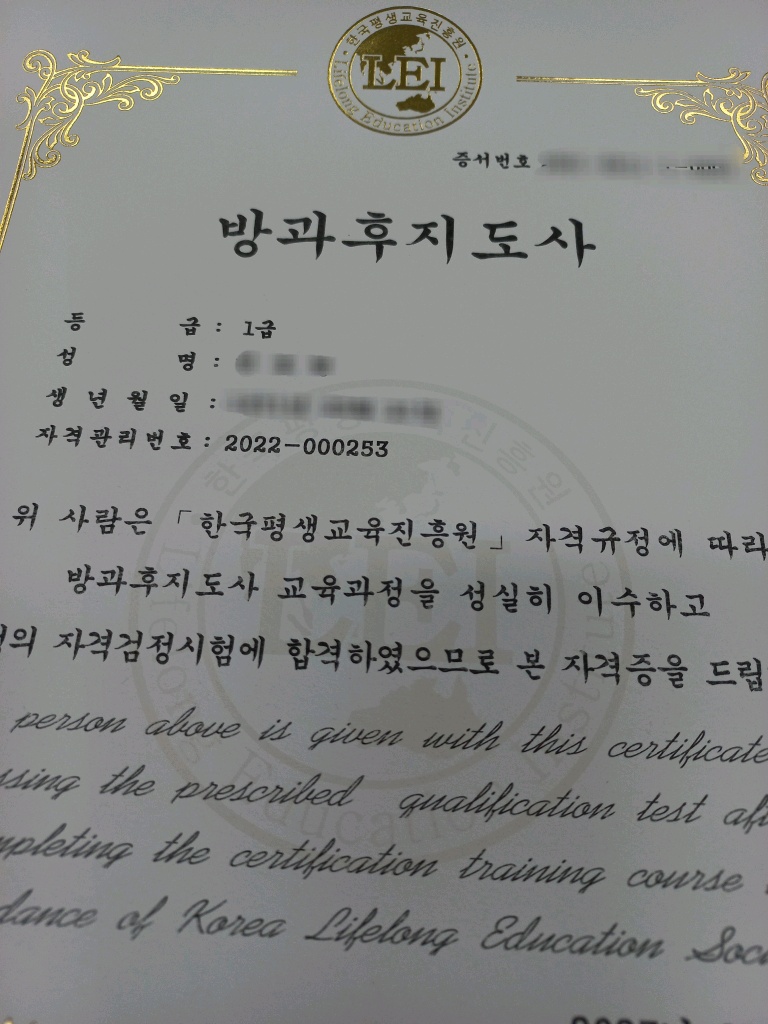 한국평생교육진흥원
LEI
Lifelong Education Institute
증서번호
방과후지도사
등 급 : 1급
성 명 :
생 년 월 일 :
자격관리번호 : 2022-000253
위 사람은 「한국평생교육진흥원」 자격규정에 따라
방과후지도사 교육과정을 성실히 이수하고
자격검정시험에 합격하였으므로 본 자격증을 드립
person above is given with this certificate
the prescribed qualification test
the certification training course
of Korea Lifelong Education